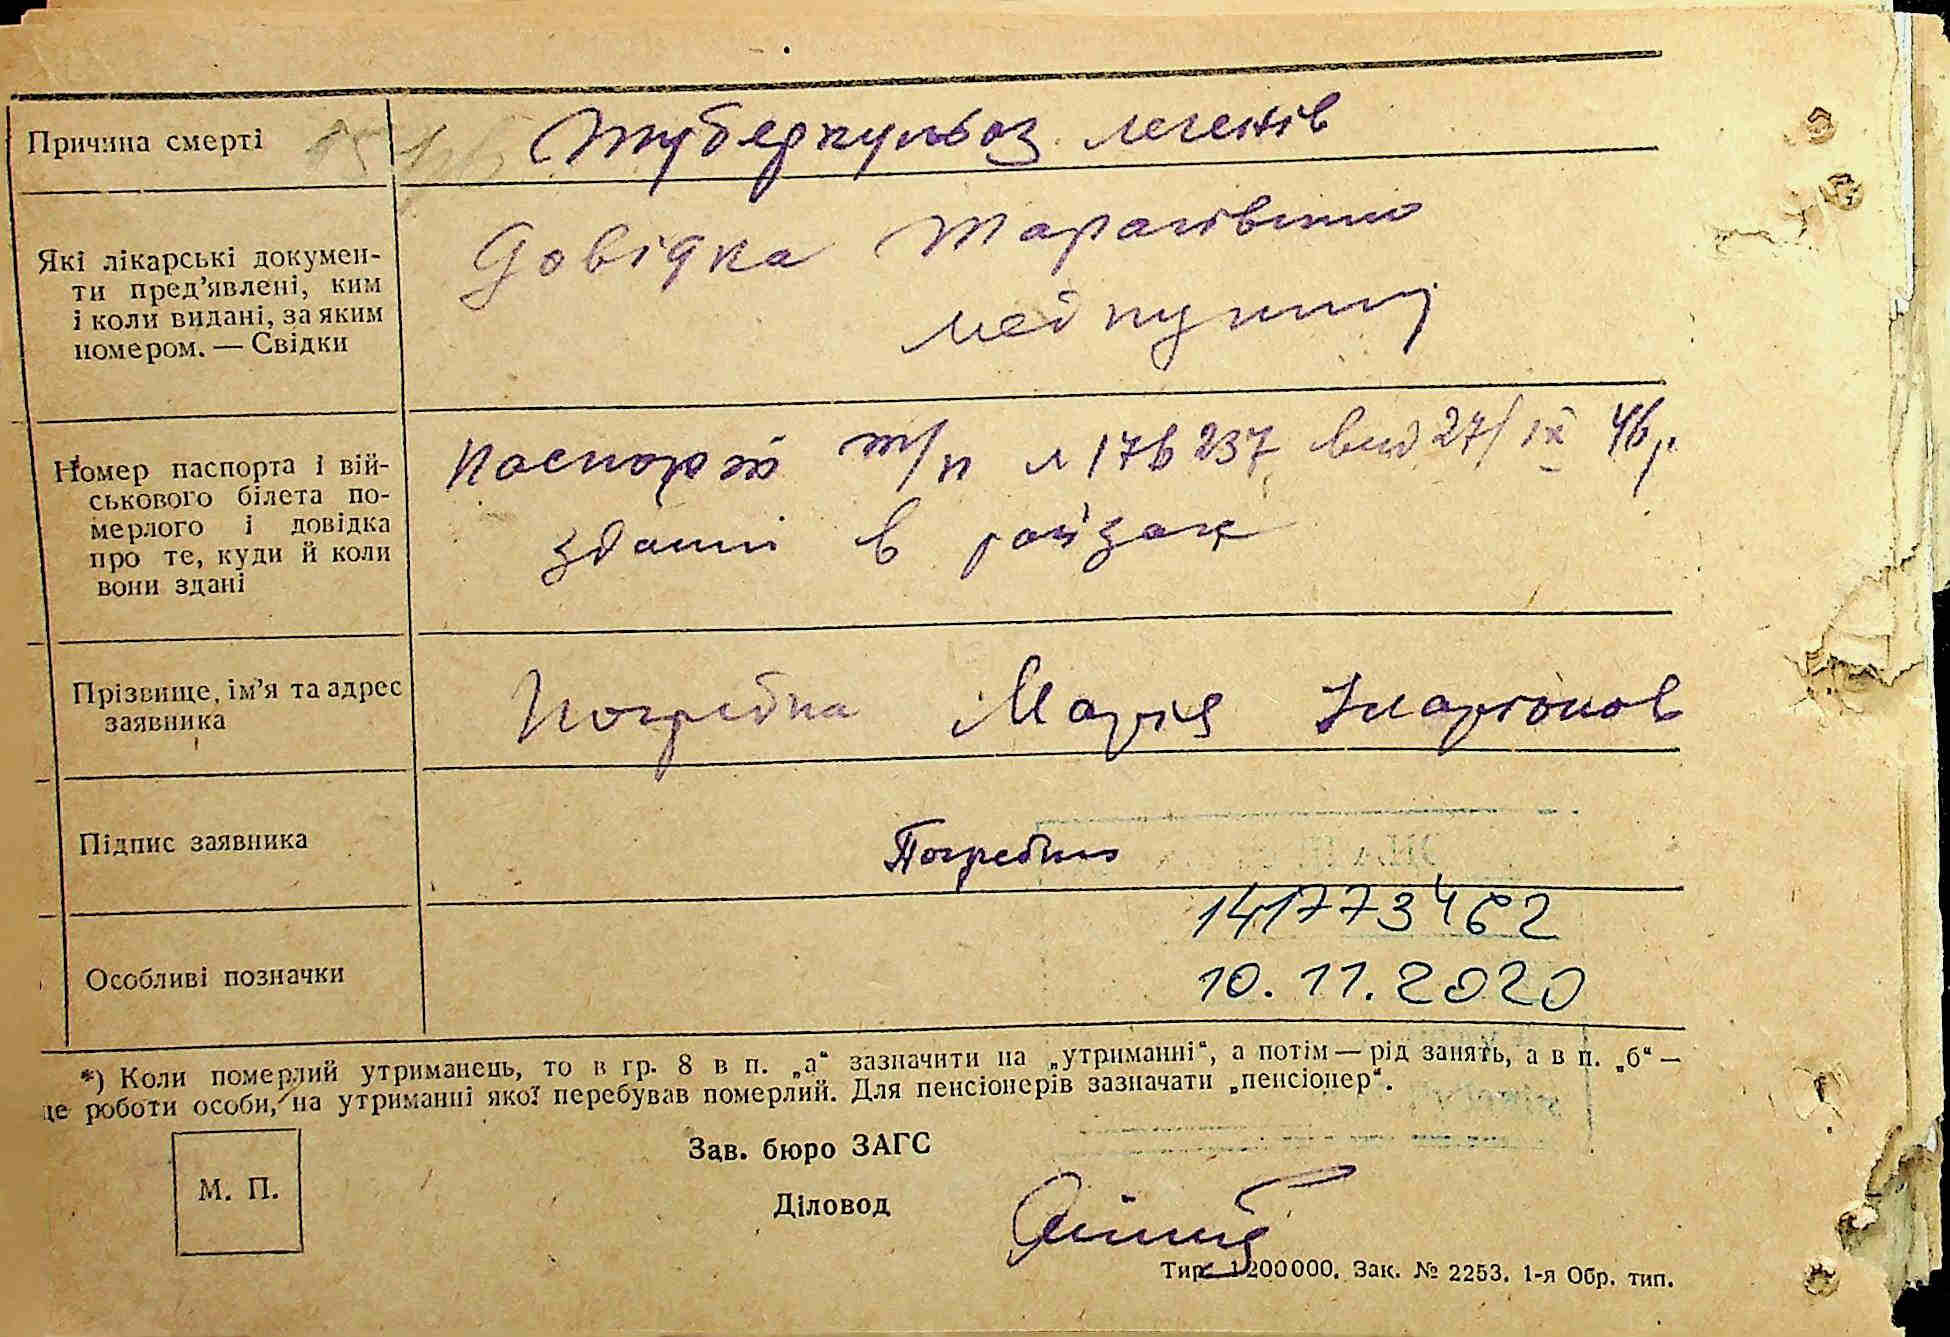 Причина смерті
Туберкульоз легенів
Які лікарські докумен-
ти пред'явлені, ким
і коли видані, за яким
номером. — Свідки
Довідка Тарасівського
медпункту
Номер паспорта і вій-
ськового білета по-
мерлого і довідка
про те, куди й коли
вони здані
Паспорт т/п № 176237 вид 27/IX 46 р.
здані в райзаг
Прізвище, ім'я та адрес
заявника
Погребна Марія Іларіонов
Підпис заявника
Погребна
Особливі позначки
141773462
10.11.2020
*) Коли померлий утриманець, то в гр. 8 в п. „а“ зазначити на „утриманні“, а потім — рід занять, а в п. „б“ —
це роботи особи, на утриманні якої перебував померлий. Для пенсіонерів зазначати „пенсіонер“.
М. П.
Зав. бюро ЗАГС
Діловод
Тир. 1200000. Зак. № 2253. 1-я Обр. тип.